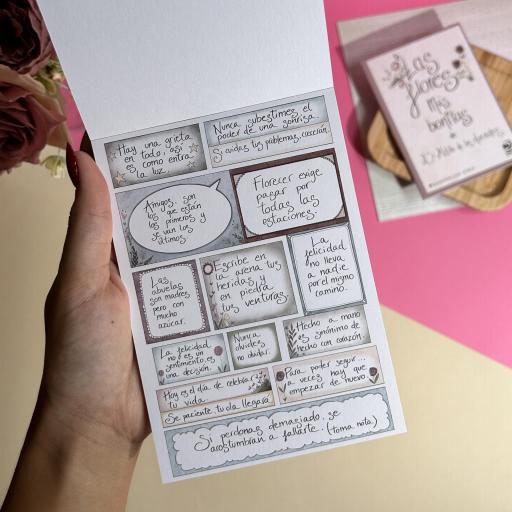 Hay una grieta
en todo, así
es como entra
la luz.
Nunca subestimes el
poder de una sonrisa.
Si cuidas tus problemas, crecerán.
Amigos, son
los que están
los primeros y
se van los
últimos.
Florecer exige
pasar por
todas las
estaciones.
Las
abuelas
son madres
pero con
mucho
azúcar.
Escribe en
la arena tus
heridas y
en piedra
tus venturas.
La
felicidad
no lleva
a nadie
por el mismo
camino.
La felicidad
no es un
sentimiento, es
una decisión.
Nunca
olvides
no olvidar.
Hecho a mano
es sinónimo de
hecho con corazón.
Hoy es el día de celebrar
tu vida.
Se paciente, tu ola llegará.
Para poder seguir...
a veces hay que
empezar de nuevo.
Si perdonas demasiado, se
acostumbran a fallarte. (toma nota)
Las
flores
más
bonitas